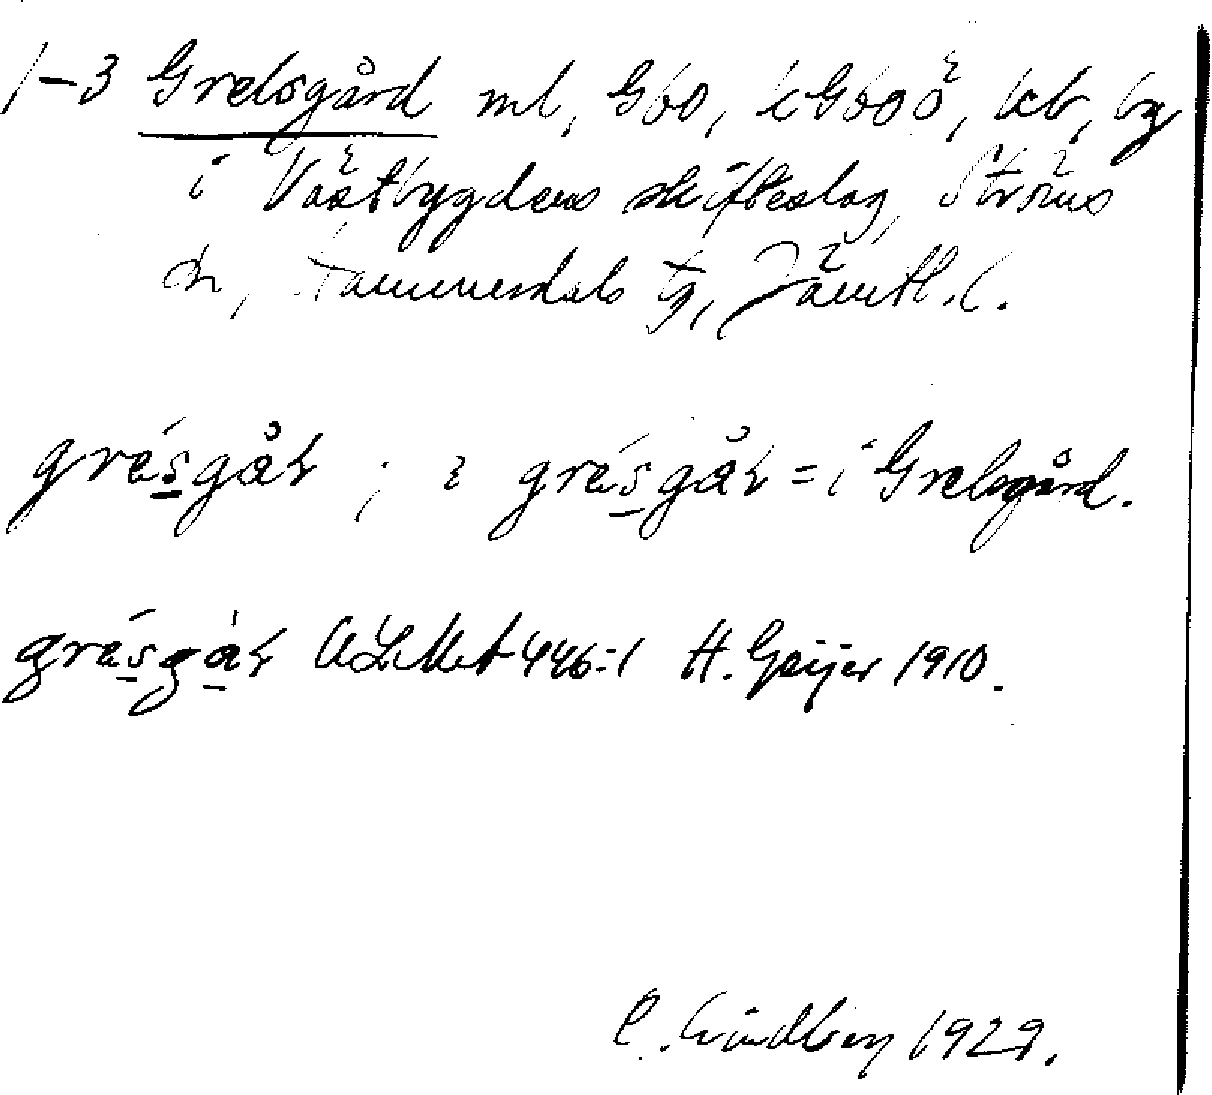 1–3 Grelsgård ml, Gbo, kGboö, kb, by
i Västbygdens skifteslag, Ströms
sn, Hammerdals tg, Jämtl. l.
grésgår ; i grésgår = i Grelsgård.
grésgàr ULMA 446:1 H. Geijer 1910.
C. Lindberg 1929.